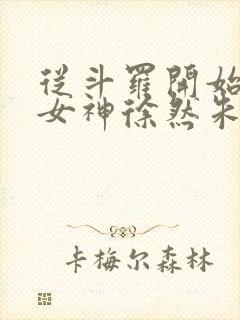 從斗羅開始
女神徐然朱
卡梅尔森林